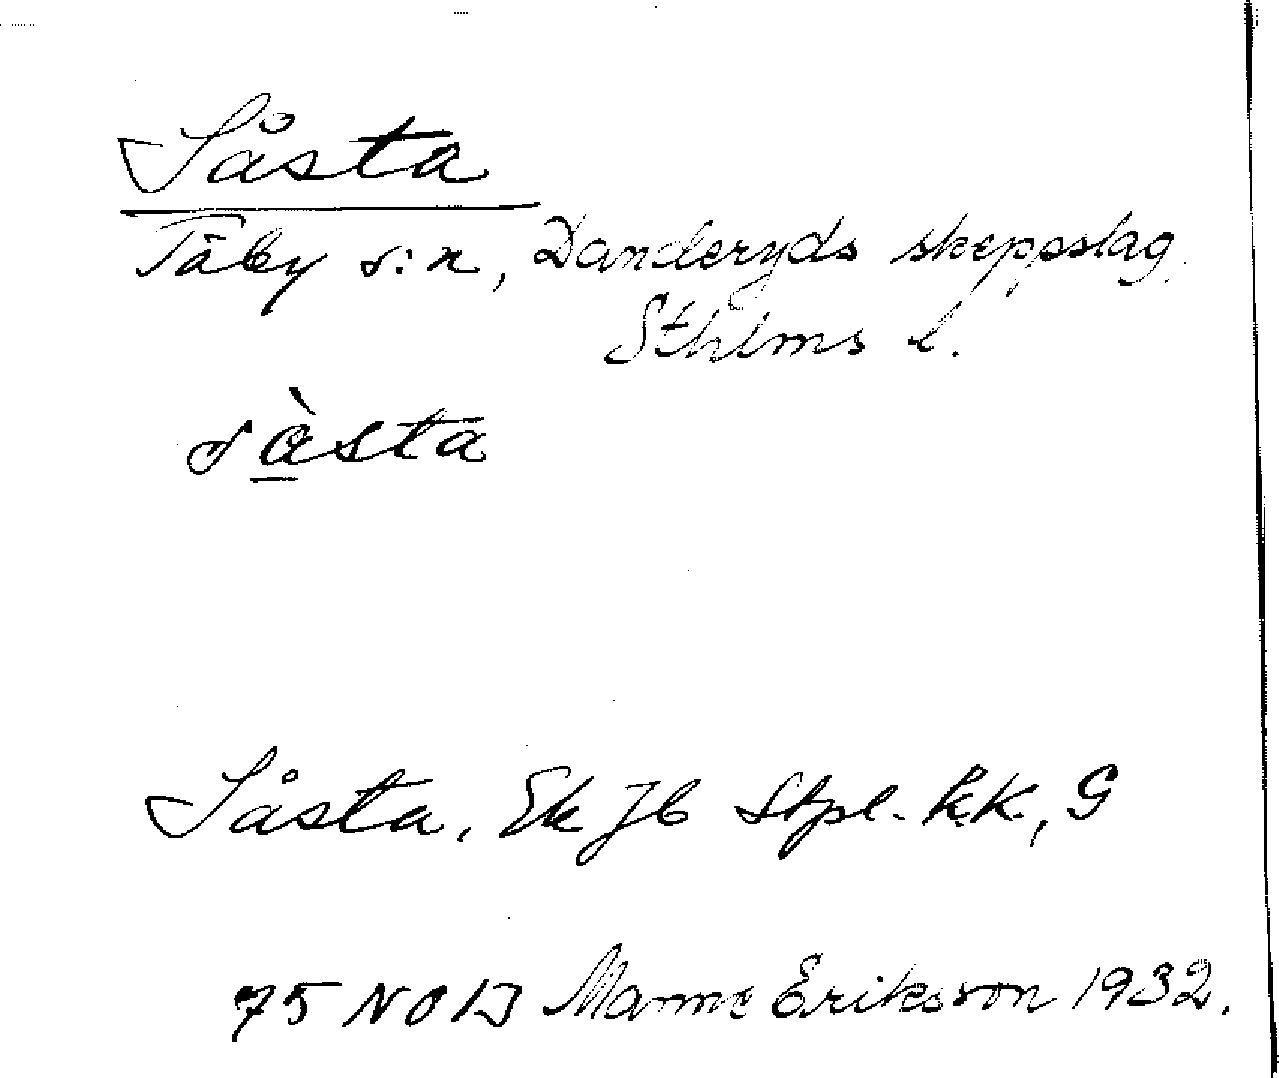 Såsta
Täby s:n, Danderyds skeppslag.
Sthlms l.
sàsta
Såsta, Ek Jb Stpl. kK, G
75 NO Manne Eriksson 1932.